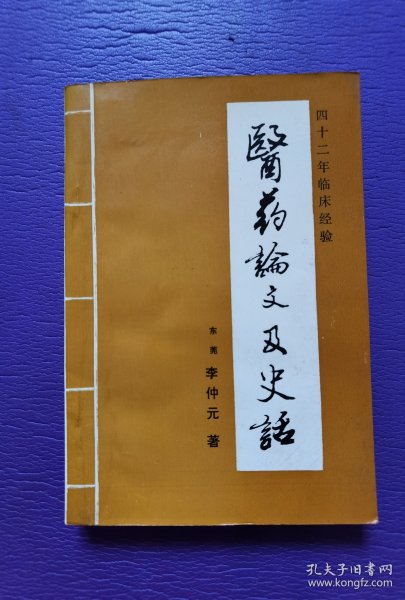 四十二年临床经验
醫药論文及史話
东莞
李仲元 著
孔夫子旧书网
www.kongfz.com